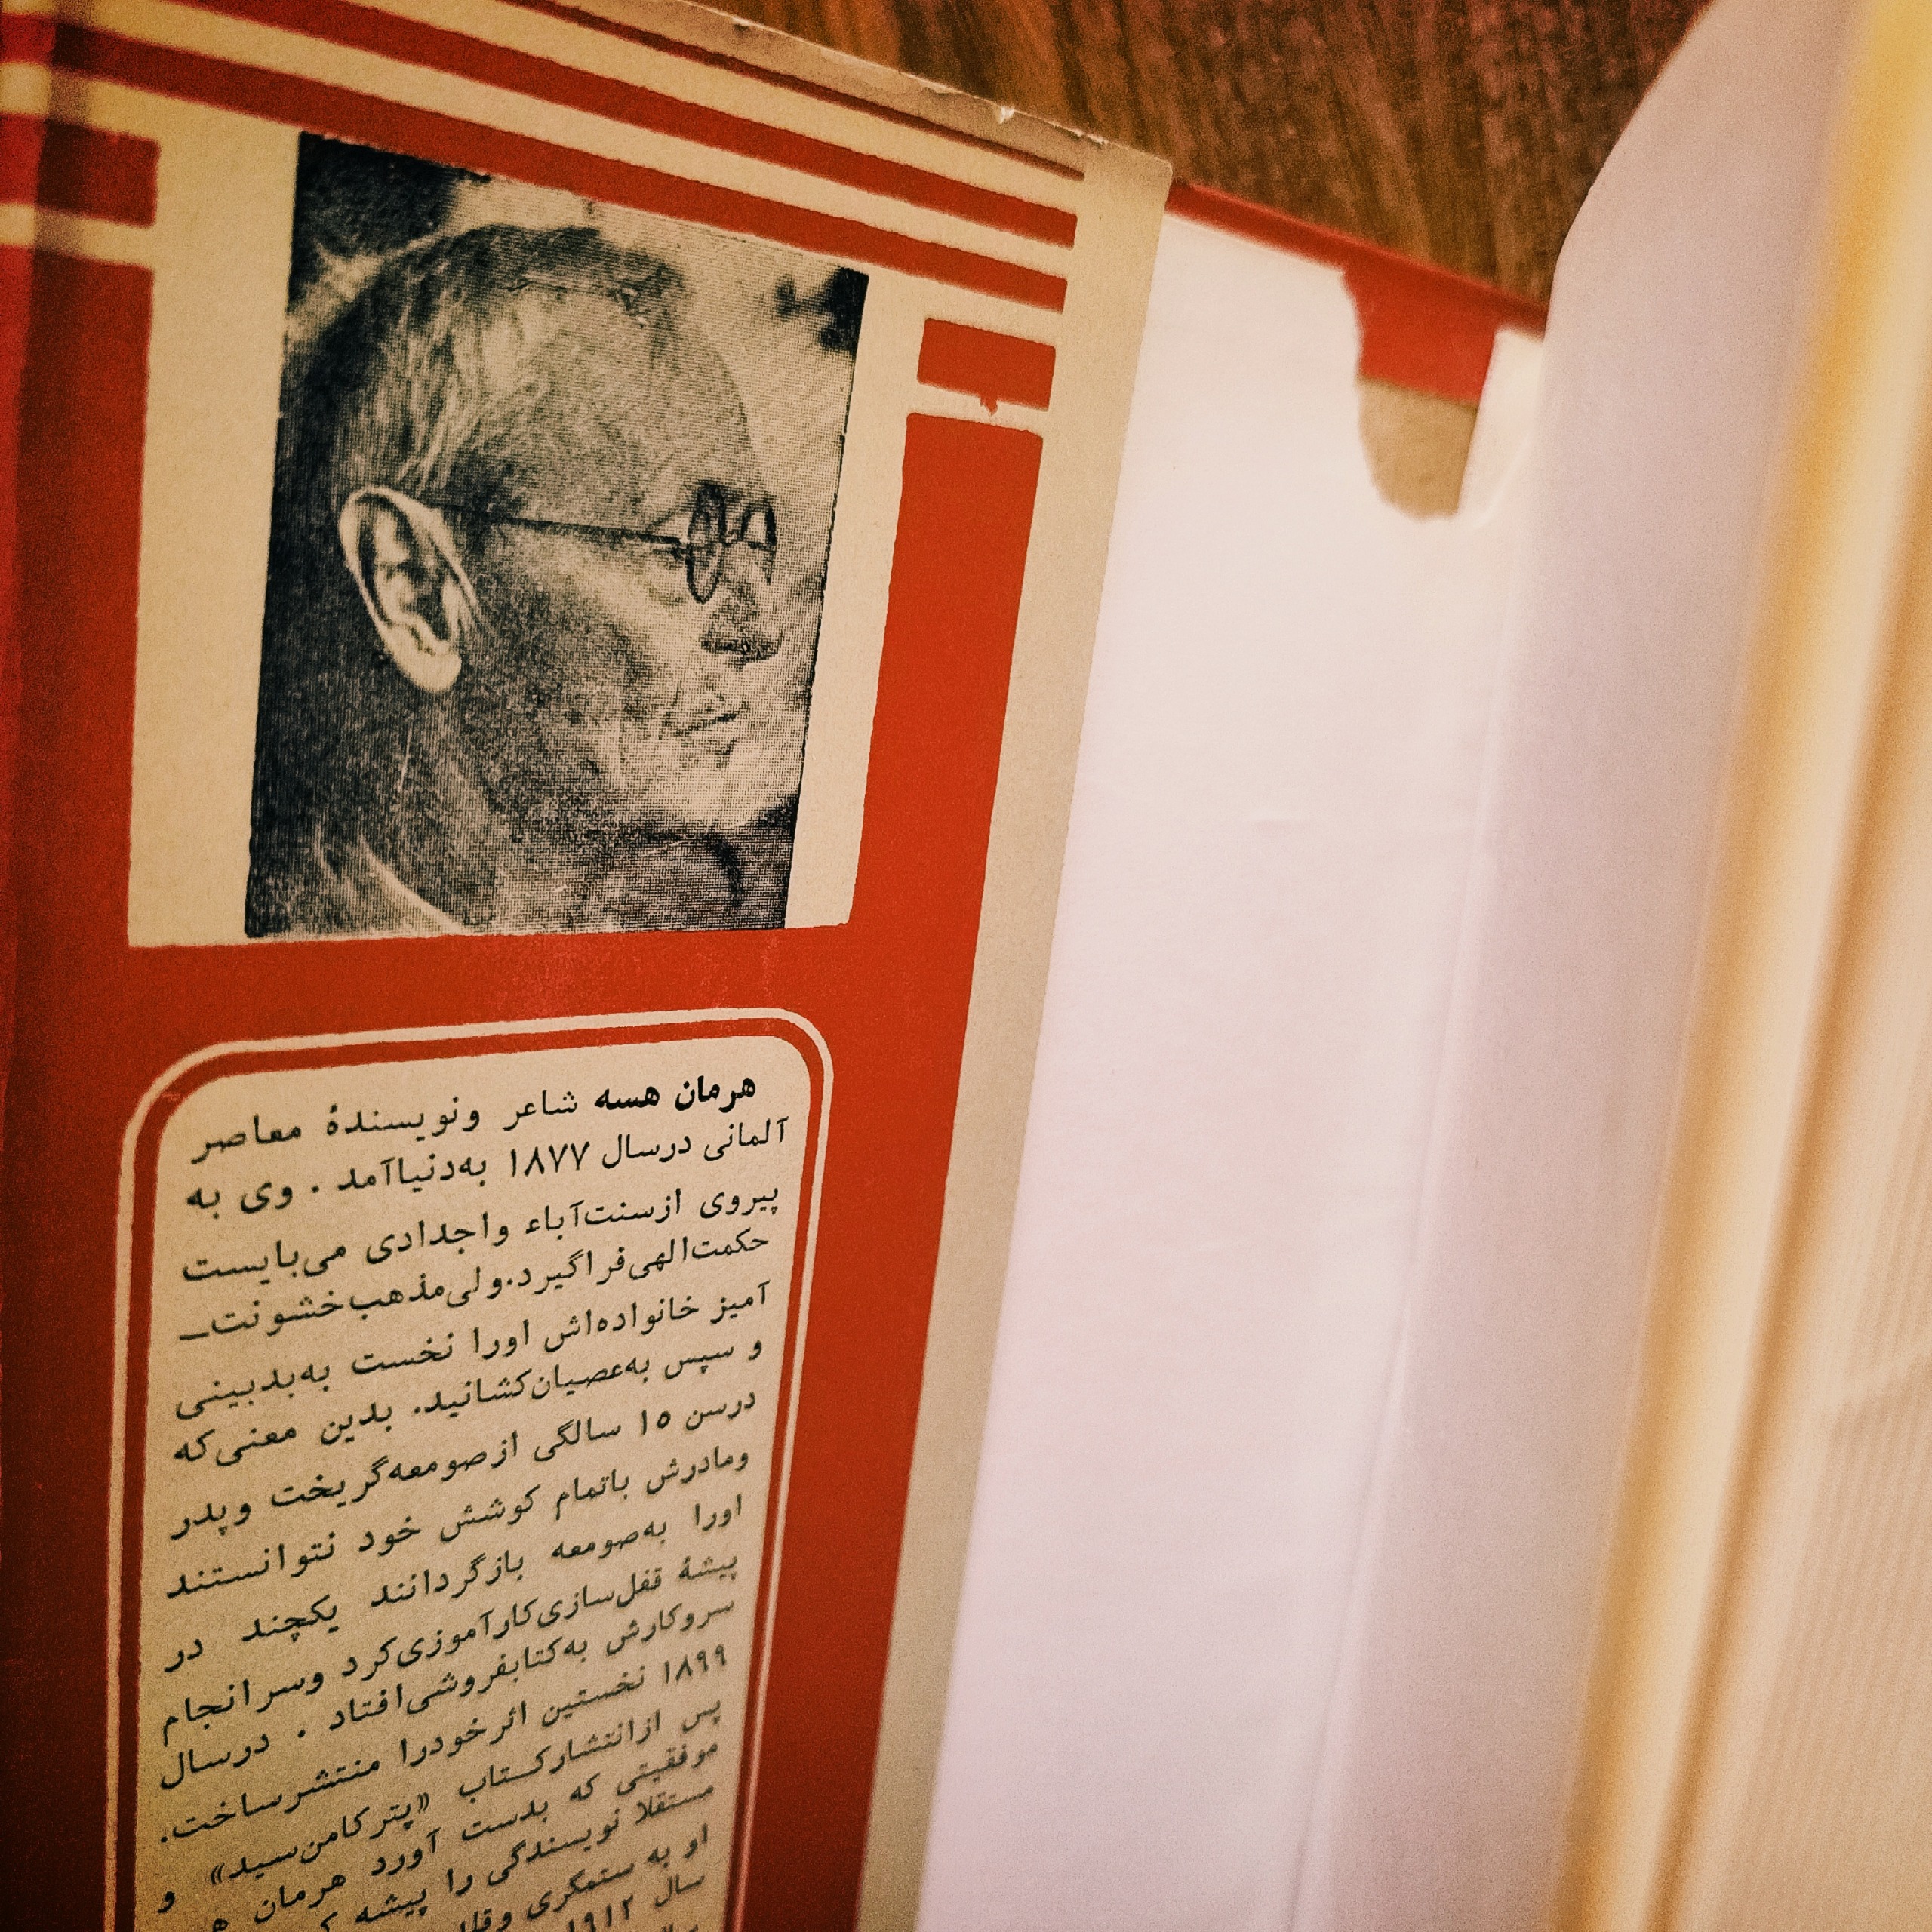 هرمان هسه شاعر ونویسندهٔ معاصر
آلمانی درسال ۱۸۷۷ به‌دنیاآمد . وی به
پیروی ازسنت‌آباء واجدادی می‌بایست
حکمت‌الهی‌فراگیرد.ولی‌مذهب‌خشونت_
آمیز خانواده‌اش اورا نخست به‌بدبینی
و سپس به‌عصیان‌کشانید. بدین معنی‌که
درسن ۱۵ سالگی ازصومعه‌گریخت وپدر
ومادرش باتمام کوشش خود نتوانستند
اورا به‌صومعه بازگردانند یکچند در
پیشهٔ قفل‌سازی‌کارآموزی‌کرد وسرانجام
سروکارش به‌کتابفروشی‌افتاد . درسال
۱۸۹۹ نخستین اثرخودرا منتشرساخت.
پس ازانتشارکتاب «پترکامن‌سید» و
موفقیتی که بدست آورد هرمان
مستقلا نویسندگی را پیشه
او به ستمگری
سال ۱۹۱۲